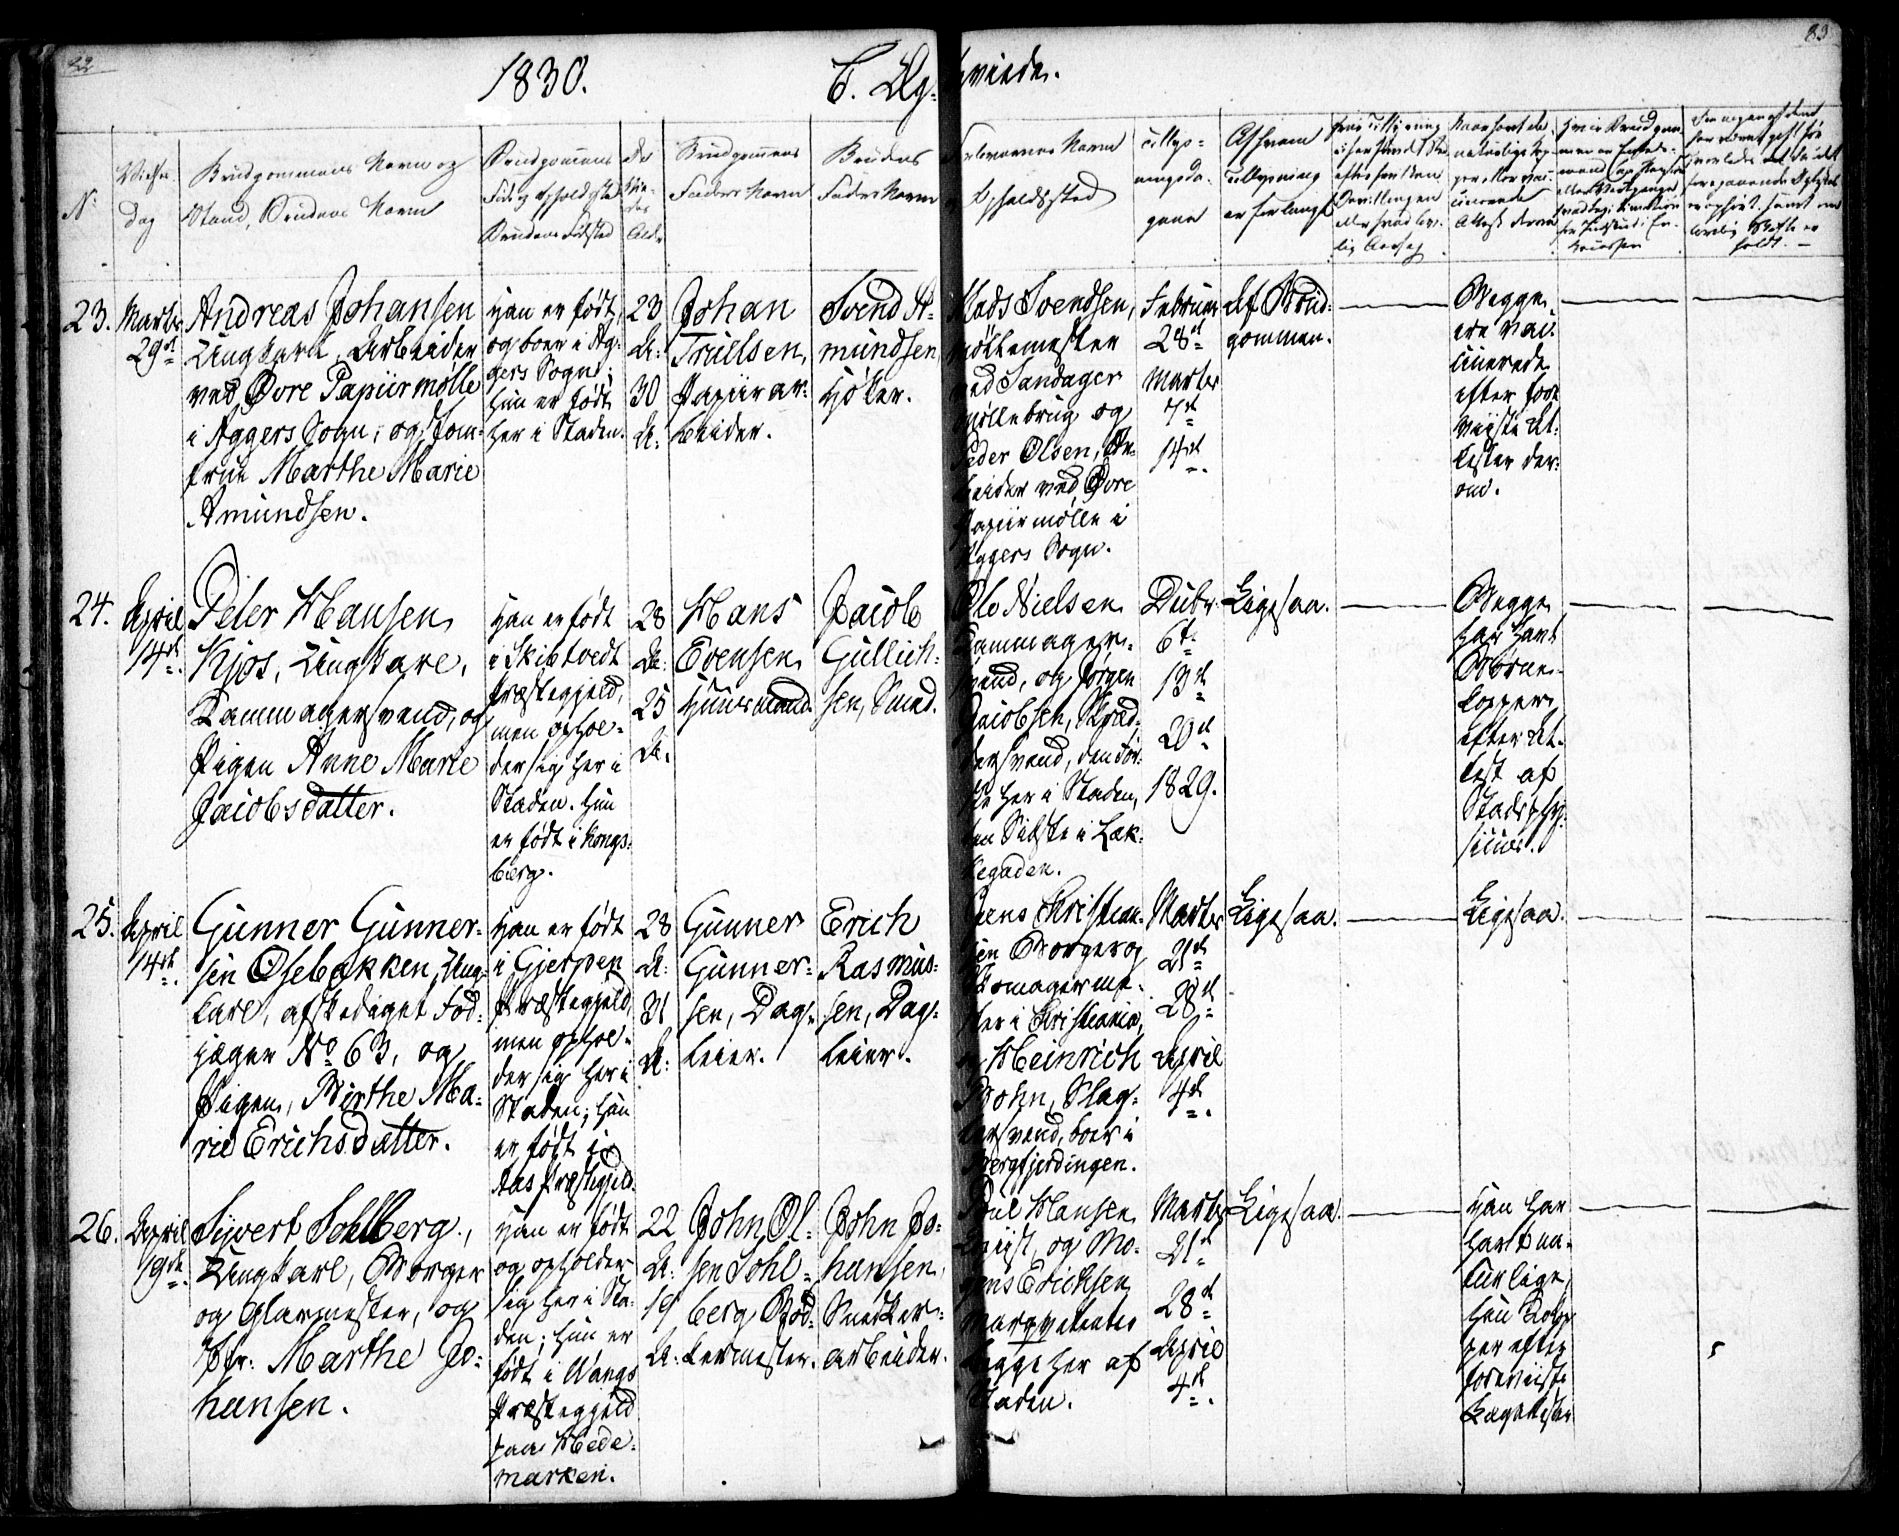 1830.
C. Ægteviede.
83
N.
Vielses
Dag
Brudgommens Navn og
Stand, Brudens Navn
Brudgommens
Føde og Opholdssted
Brudens Fødested
Brudgommens
Faders Navn
Brudens
Faders Navn
Forlovernes Navn
og Opholdssted
Tillys-
ningsda-
gene
Af hvem
Tillysning
er forlangt
23.
Marts
29de
Andreas Johansen
Ungkarl, Arbeider
ved Øvre Papiirmølle
i Aggers Sogn; og Jom-
frue Marthe Marie
Amundsen.
Han er født,
og boer i Ag-
gers Sogn;
Hun er født
her i Staden.
23
A:
30
A:
Johan
Truelsen,
Papiirar-
beider.
Svend A-
mundsen,
Høker.
Mads Svendsen,
Møllemester
ved Sandager
Møllebrug og
Peder Olsen, Ar-
beider ved Øvre
Papiirmølle i
Aggers Sogn.
Februar
28de
Marts
7de
14de.
Af Brud-
gommen.
Begge
ere vac-
cinerede
efter fore
viiste At-
tester der-
om.
24.
April
14de.
Peter Hansen
Kjos, Ungkarl,
Kammagersvend, og
Pigen Anne Marie
Jacobsdatter.
Han er født
i Skibtvedt
Præstegjeld,
men ophol-
der sig her i
Staden. Hun
er født i Kongs-
berg.
28
A:
25
A.
Hans
Evensen
Huusmand.
Jacob
Gullich-
sen, Smed.
Ole Nielsen
Kammager-
svend, og Jørgen
Jacobsen, Skræd-
dersvend, den før-
ste her i Staden,
den Sidste i Lak-
kegaden.
Decbr.
6te
13de
20de
1829.
Ligesaa.
Begge
har havt
Børne-
kopper
efter At-
test af
Stadsphy-
sicus.
25.
April
14de.
Gunner Gunner-
sen Osebakken, Ung-
karl, afskediget Fod-
jæger No 63, og
Pigen, Birthe Ma-
rie Erichsdatter.
Han er født
i Gjerpen
Præstegjeld,
men ophol-
der sig her i
Staden; hun
er født i
Aas Præstegjeld.
28
A:
31
A:
Gunner
Gunner-
sen, Dag-
leier.
Erich
Rasmus-
sen, Dag-
leier.
Jens Christian-
sen Borger og
Skomagerme-
ster i Christiania,
og Heinrich
Bohn, Slag-
tersvend, boer i
Bergfjerdingen.
Marts
21de
28de
April
4de.
Ligesaa.
Ligesaa.
26.
April
19de.
Sivert Sohlberg,
Ungkarl, Borger
og Glarmester, og
Jfr: Marthe Jo-
hansen.
Han er født
og opholder
sig her i Sta-
den; hun er
født i Wangs
Præstegjeld
paa Hede-
marken.
22
A:
19
A:
John Ol-
sen Sohl-
berg Bød-
kermester.
John Jo-
hansen,
Snedker-
arbeider.
Poul Hansen
og Mo-
gens Erichsen
Marqvetenter
begge her af
Staden.
Marts
21de
28de
April
4de.
Ligesaa.
Han har
havt na-
turlige,
hun Kop-
per efter
foreviiste
Lægattester